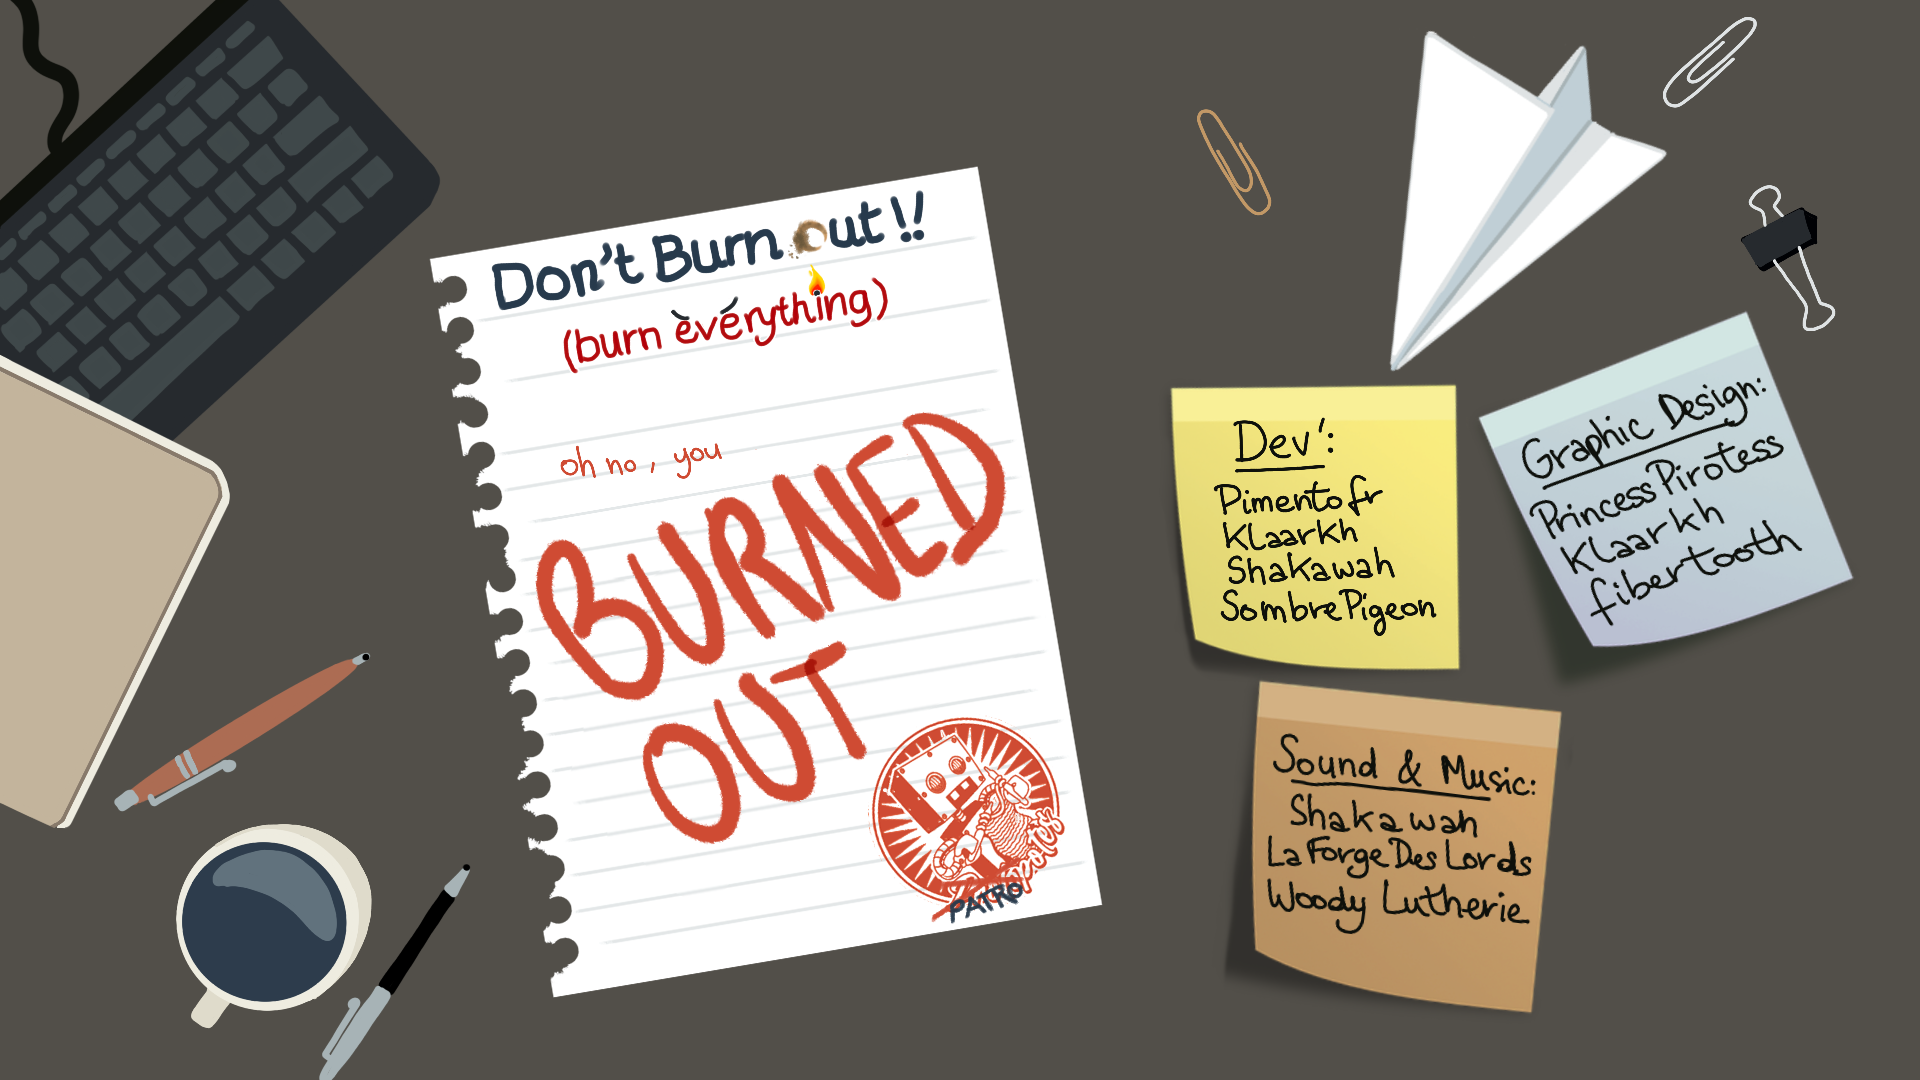 Don't Burn out!!
(burn everything)
oh no, you
BURNED
OUT
PATRO
Dev':
Pimentofr
Klaarkh
Shakawah
SombrePigeon
Graphic Design:
PrincessPirotess
Klaarkh
fibertooth
Sound & Music:
Shakawah
LaForgeDesLords
Woody Lutherie